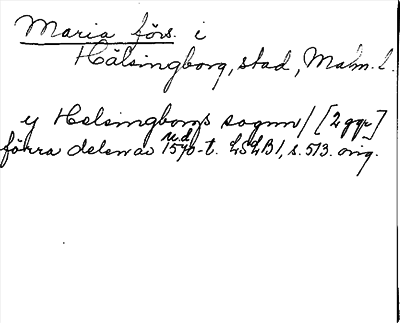 Maria förs. i
Hälsingborg, stad, Malm. l.
y Helsingborgs sognn / [2 ggr]
u.d.
förra delen av 1570-t. LSLB1, s. 513. orig.